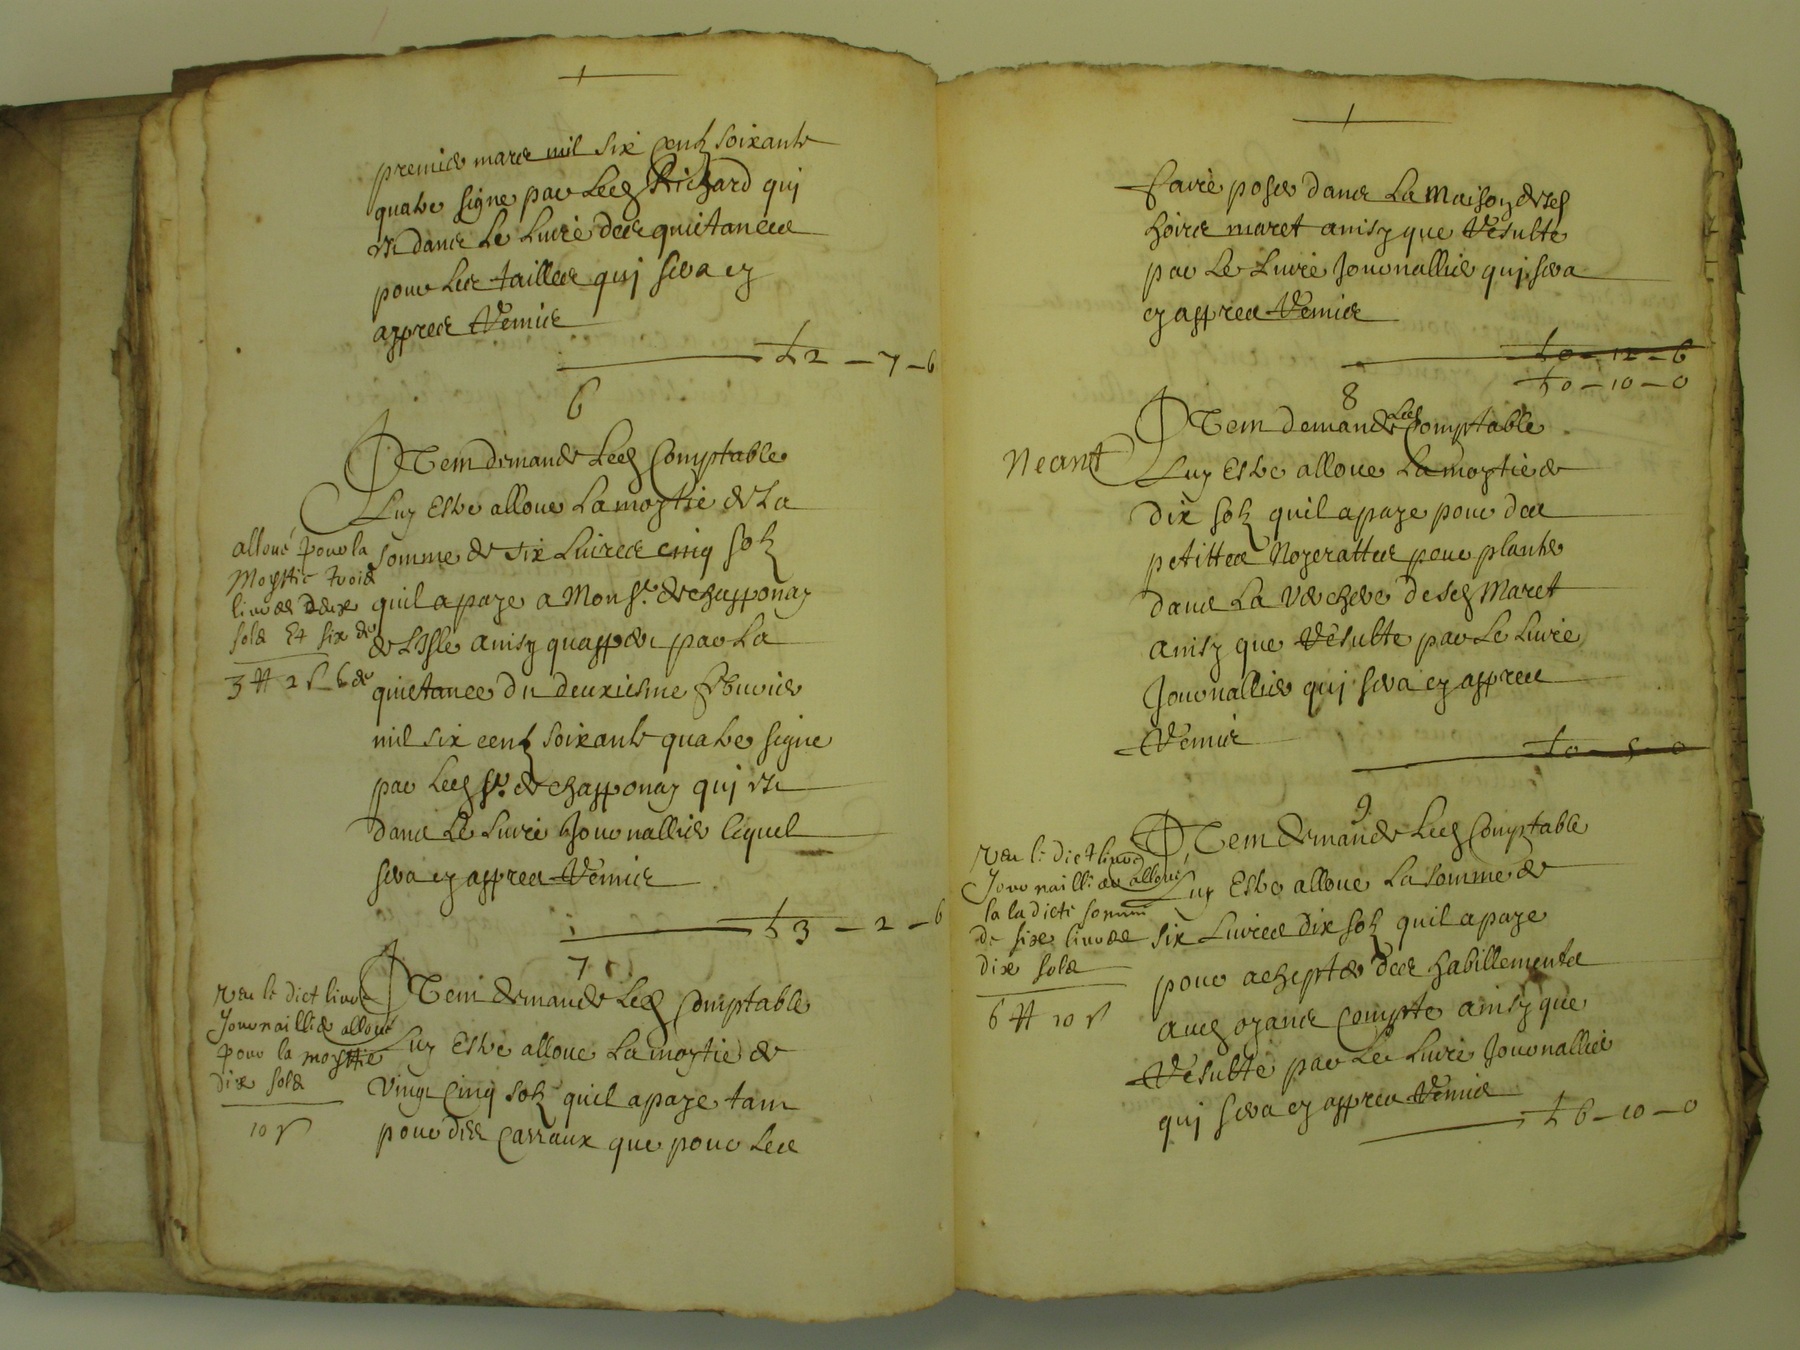 premier mars mil six centz soixante
quatre signe par led Richard quj
est dans le livre des quictances
pour les tailles quj sera cy
appres remis
£ 2 – 7 – 6
6
Item demande led Comptable
Luy estre alloue la moytie de la
somme de six livres cinq solz
quil a paye a Monsr. de chapponay
de Lisle ainsy quappert par la
quictance du deuxiesme febvrier
mil six centz soixante quatre signe
par led sr. de chapponay quj est
dans le livre Journallier lequel
sera cy appres remis
£ 3 – 2 – 6
alloué pour la
Moyttie trois
livres deux
sols Et six ds
3 ₶ 2 s 6 ds
7
Item demande led Comptable
Luy estre alloue la moytie de
vingt cinq solz quil a paye tant
pour des carraux que pour les
veu le dict livre
Journaillier alloué
pour la moyttie
dix sols
10 s
faire poser dans la maison desd
hoirs maret ainsy que resulte
par le livre Journallier quj sera
cy appres remis
£ 0 – 12 – 6
£ 0 – 10 – 0
8
Item demande led Comptable
Luy estre alloue la moytie de
dix solz quil a paye pour des
petittes Noyerattes pour planter
dans la verchere desd Maret
ainsy que resulte par le livre
Journallier quj sera cy appres
remis
£ 0 – 5 – 0
Neant
9
Item demande led Comptable
Luy estre alloue la somme de
six livres dix solz quil a paye
pour achepter des habillements
aud oyans compte ainsy que
resulte par le livre Journallier
quj sera cy appres remis
£ 6 – 10 – 0
veu le dict livre
Journaillier alloué
la ladicte somme
de six livres
dix sols
6 ₶ 10 s